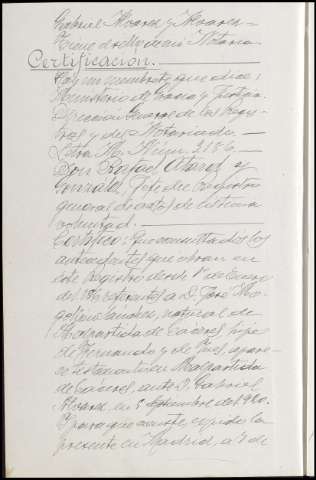 Gabriel Alvarez y Alvarez =
Tiene
Certificacion.
Hay un membrete que dice:
Ministerio de Gracia y Justicia
Direccion General de los Regis-
tros y del Notariado.
Letra M. Núm. 3186.
Don Rafael y
Gonzalez, Jefe del registro
general de actos de última
voluntad.
Certifico: Que consultados los
antecedentes que obran en
este Registro desde 1º de Enero
del referentes a D. José
Sanchez, natural de
Malpartida de Cáceres, hijo
de Fernando y de Inés, apare-
ce testamento en Malpartida
de Cáceres, ante D. Gabriel
Alvarez en 5 Septiembre de 1920.
Y para que conste, expido la
presente en Madrid, a 7 de